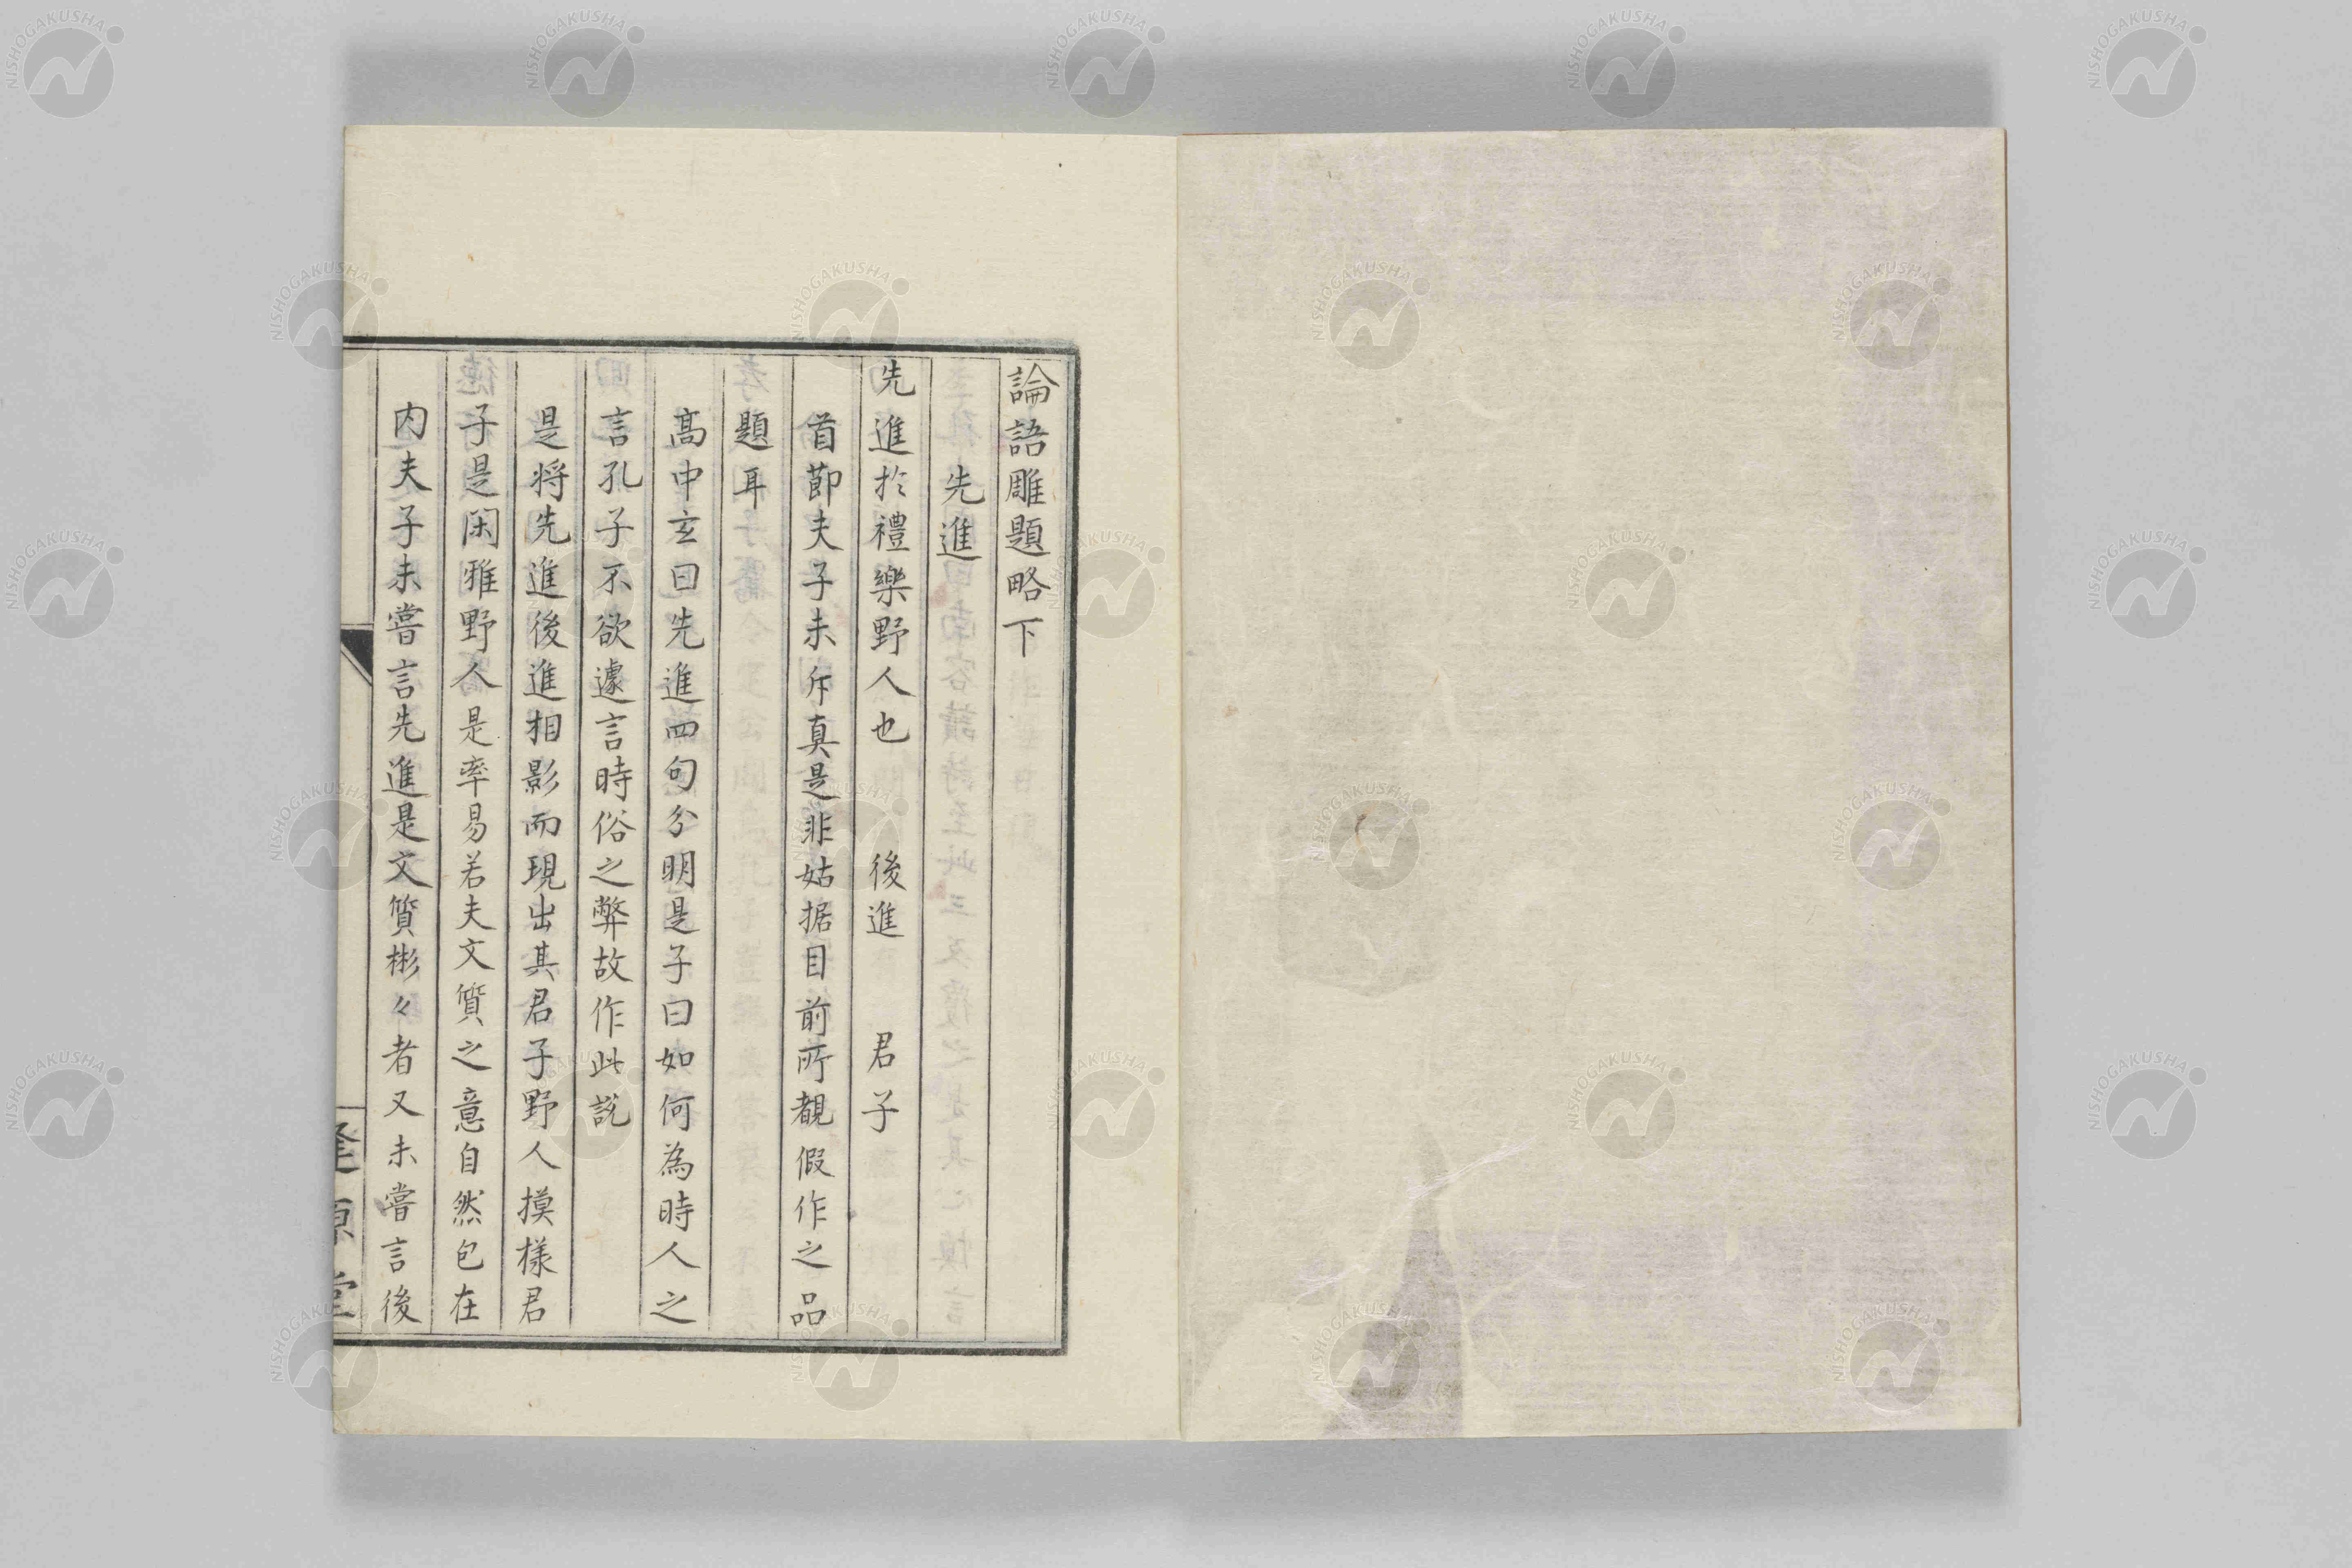 論語雕題略下
先進
先進於禮樂野人也 後進 君子
首節夫子未斥真是非姑据目前所覩假作之品
題耳
髙中玄曰先進四句分明是子曰如何為時人之
言孔子不欲遽言時俗之弊故作此説
是将先進後進相影而現出其君子野人摸樣君
子是閑雅野人是率易若夫文質之意自然包在
内夫子未嘗言先進是文質彬々者又未嘗言後
NISHOGAKUSHA